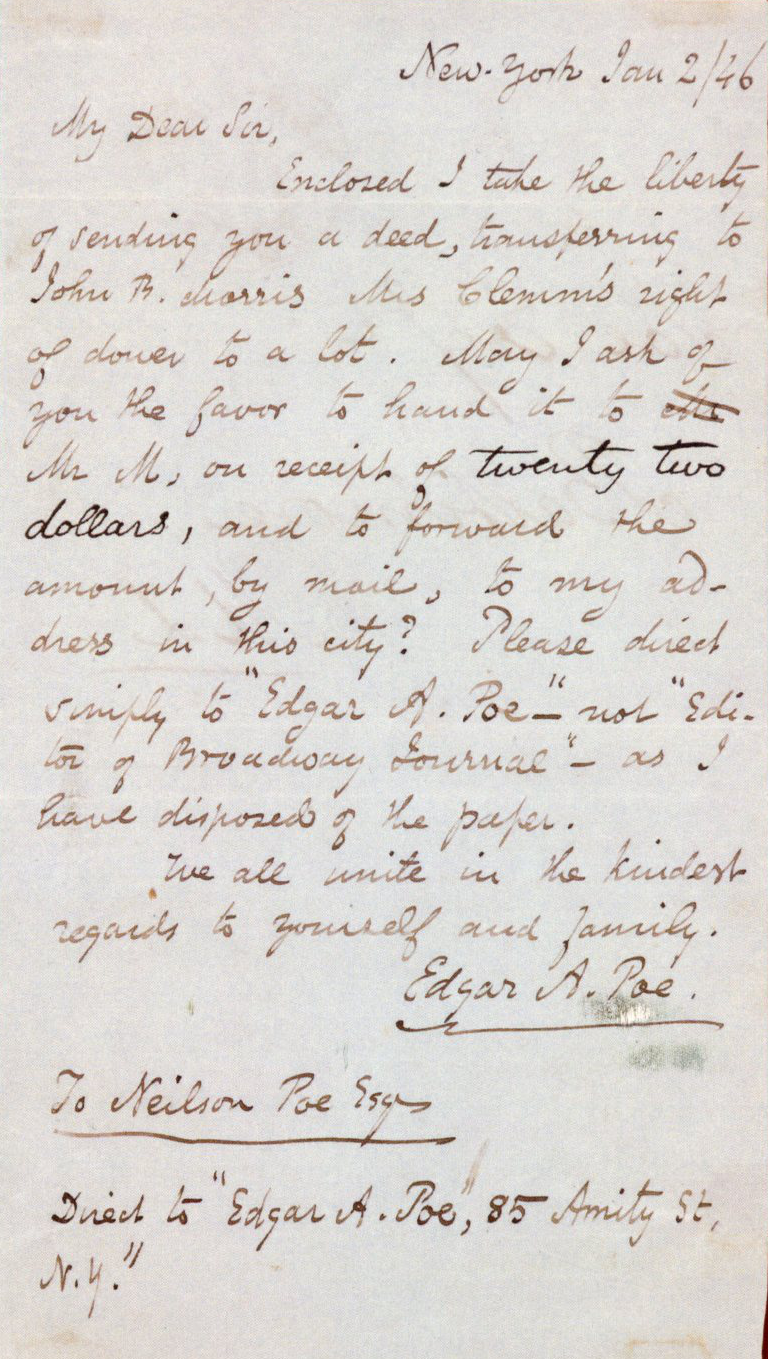 New-York Jan 2/46
My Dear Sir,
Enclosed I take the liberty
of sending you a deed, transferring to
John B. Morris Mrs Clemm's right
of dower to a lot. May I ask of
you the favor to hand it to Mr
Mr M, on receipt of twenty two
dollars, and to forward the
amount, by mail, to my ad-
dress in this city? Please direct
simply to "Edgar A. Poe—" not "Edi-
tor of Broadway Journal"— as I
have disposed of the paper.
We all unite in the kindest
regards to yourself and family.
Edgar A. Poe.
To Neilson Poe Esqr
Direct to "Edgar A. Poe", 85 Amity St,
N.Y."